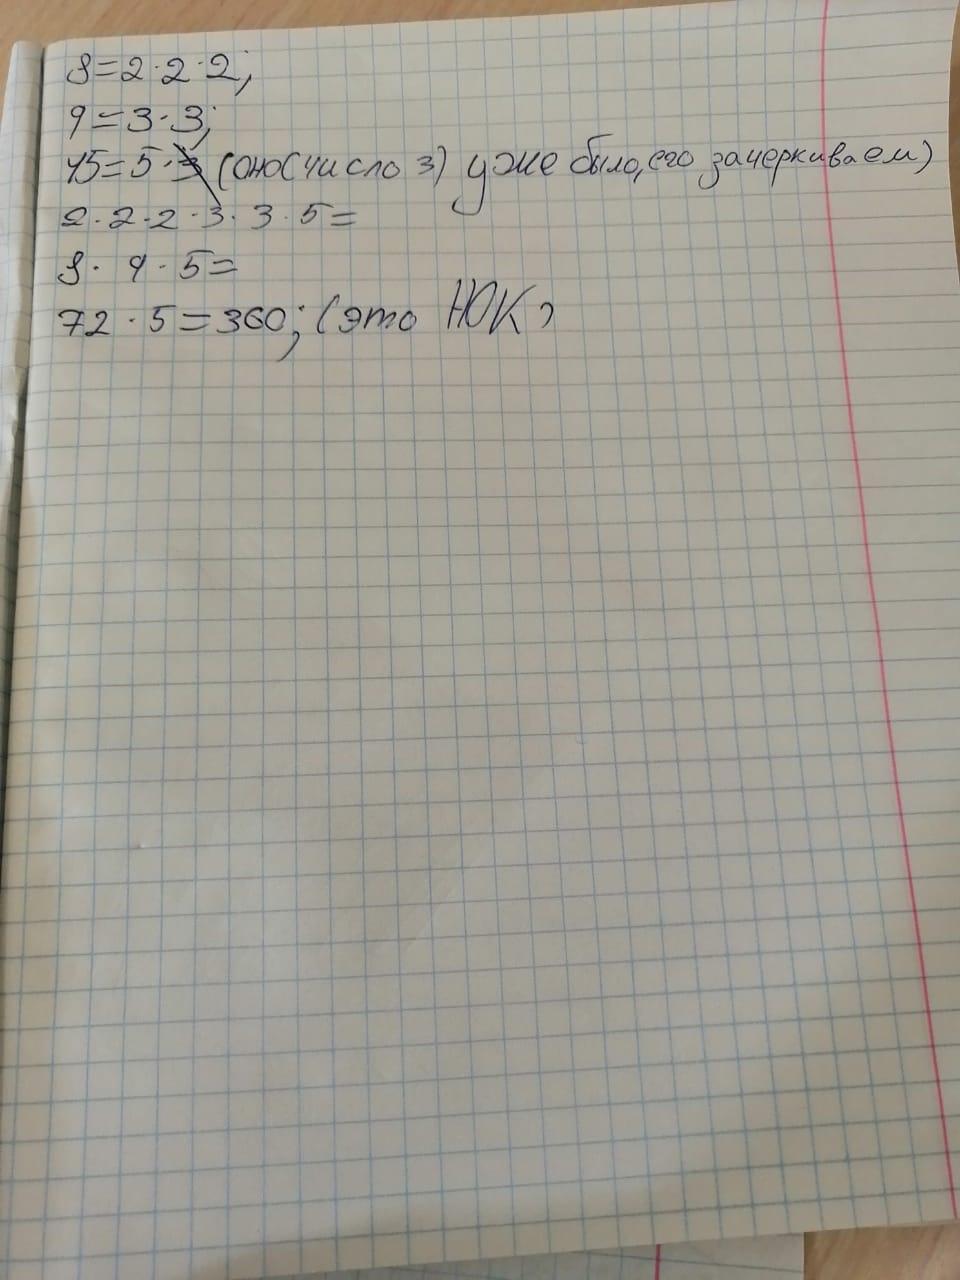 8=2·2·2;
9=3·3;
15=5·3 (оно(число 3) уже было, его зачеркиваем)
2·2·2·3·3·5=
8·9·5=
72·5=360; (это НОК)